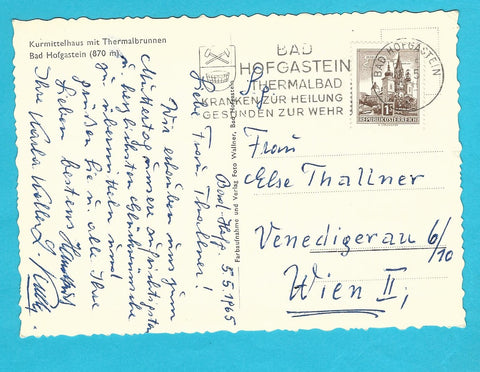 Kurmittelhaus mit Thermalbrunnen
Bad Hofgastein (870 m)
BAD
HOFGASTEIN
THERMALBAD
KRANKEN ZUR HEILUNG
GESUNDEN ZUR WEHR
BAD HOFGASTEIN
REPUBLIK ÖSTERREICH
Farbaufnahme und Verlag Foto Wallner, Bad Hofgastein
5.5.1965
Liebe Frau Thallner!
Wir erlauben uns zum
Muttertag unsere aufrichtigsten
u. herzlichsten Glückwünsche
zu übermitteln und
grüßen Sie u. alle Ihre
Lieben bestens
Ihre
Frau
Else Thallner
Venedigerau 6/10
Wien II,